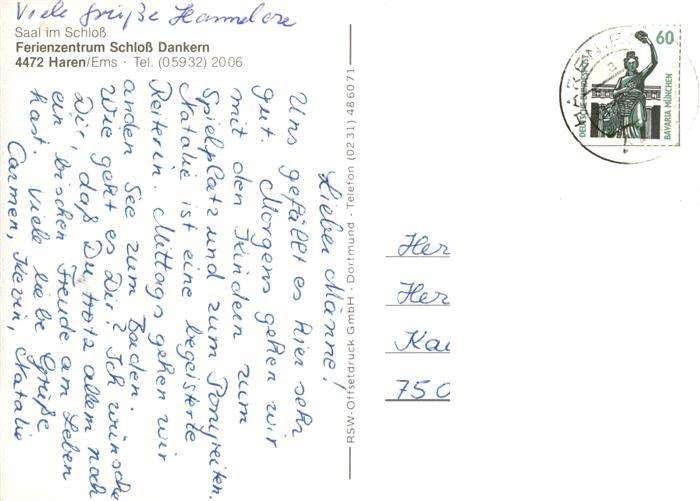 Viele Grüße Hannelore
Saal im Schloß
Ferienzentrum Schloß Dankern
4472 Haren/Ems · Tel. (05932) 2006
Lieber Männe!
Uns gefällt es hier sehr
gut. Morgens gehen wir
mit den Kindern zum
Spielplatz und zum Ponyreiten.
Natalie ist eine begeisterte
Reiterin. Mittags gehen wir
an den See zum Baden.
Wie geht es Dir? Ich wünsche
Dir, daß Du trotz allem noch
ein bischen Freude am Leben
hast. Viele liebe Grüße
Carmen, Kevin, Natalie
RSW-Offsetdruck GmbH · Dortmund · Telefon (0231) 486071
60
DEUTSCHE BUNDESPOST
BAVARIA MÜNCHEN
HAREN, E
Her
Her
Kai
750